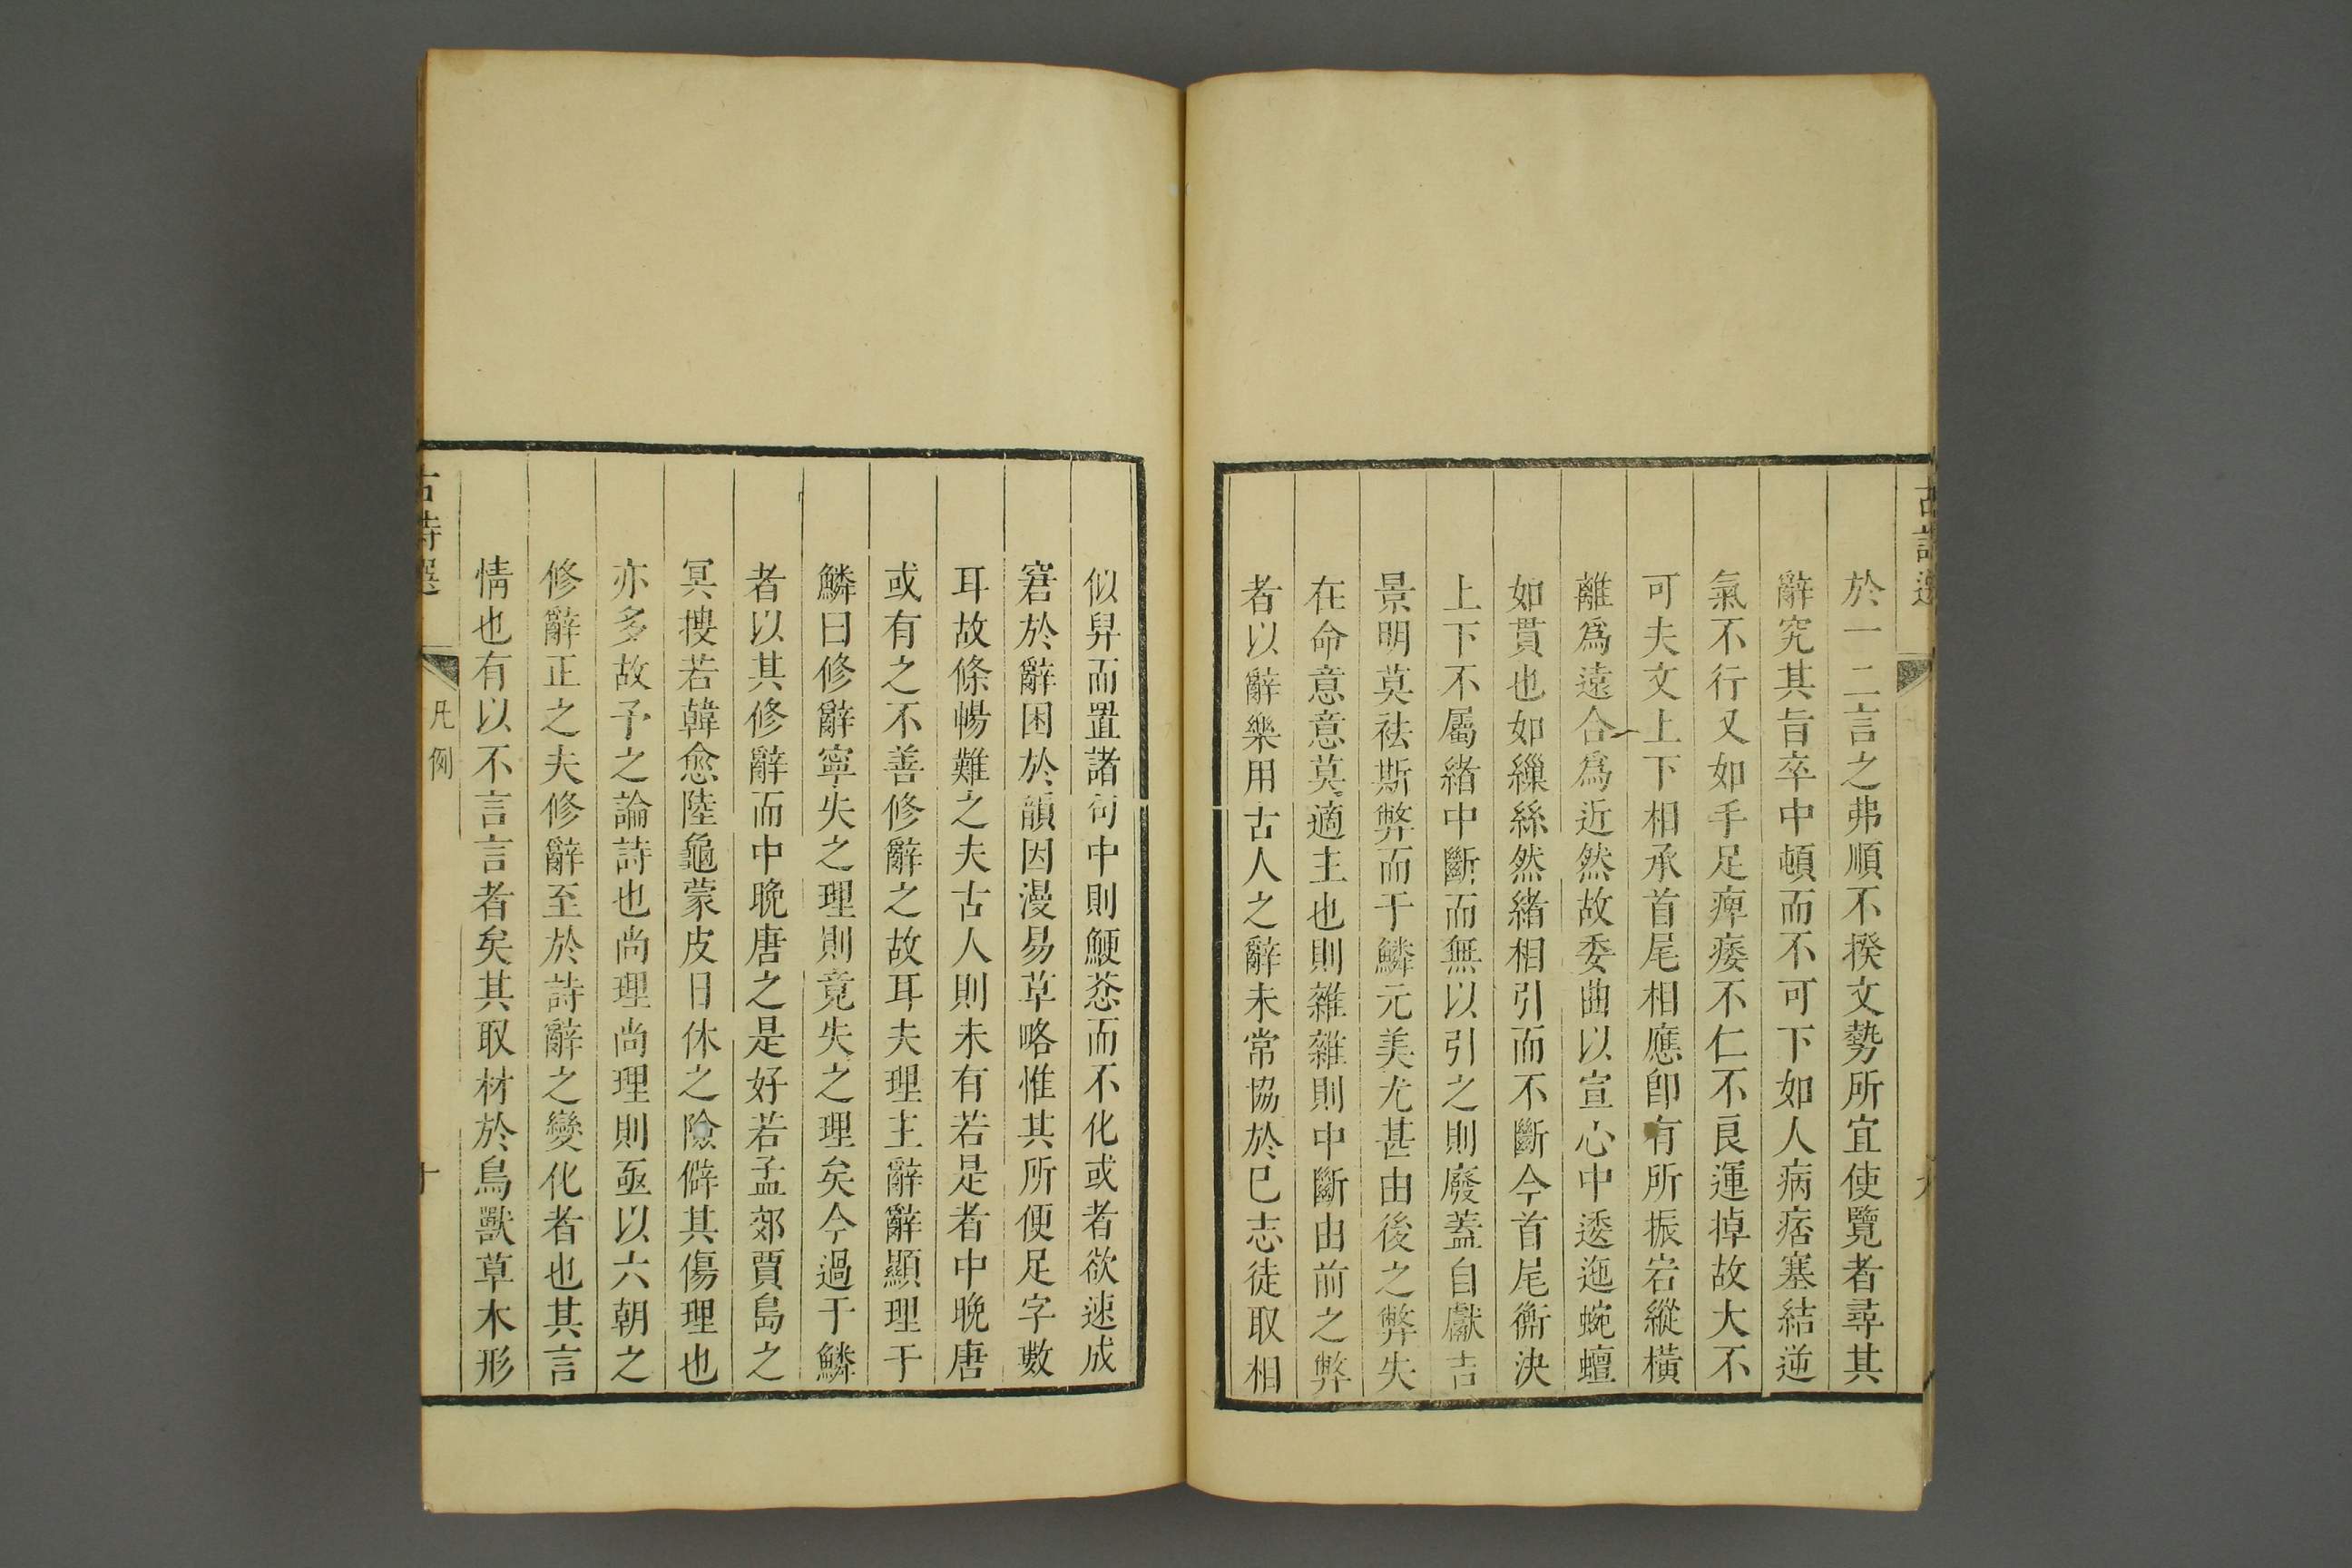 於一二言之弗順不揆文勢所宜使覽者尋其
辭究其旨卒中頓而不可下如人病痞塞結逆
氣不行又如手足痺痿不仁不良運掉故大不
可夫文上下相承首尾相應卽有所振宕縱橫
離爲遠合爲近然故委曲以宣心中逶迤蜿蟺
如貫也如繅絲然緒相引而不斷今首尾衡決
上下不屬緒中斷而無以引之則廢蓋自獻吉
景明莫袪斯弊而于鱗元美尤甚由後之弊失
在命意意莫適主也則雜雜則中斷由前之弊
者以辭樂用古人之辭未常協於巳志徒取相
似舁而置諸句中則鯁而不化或者欲速成
窘於辭困於韻因漫易草略惟其所便足字數
耳故條暢難之夫古人則未有若是者中晚唐
或有之不善修辭之故耳夫理主辭辭顯理于
鱗曰修辭寧失之理則竟失之理矣今過于鱗
者以其修辭而中晚唐之是好若孟郊賈島之
冥搜若韓愈陸龜蒙皮日休之險僻其傷理也
亦多故予之論詩也尚理尚理則亟以六朝之
修辭正之夫修辭至於詩辭之變化者也其言
情也有以不言言者矣其取材於鳥獸草木形
古詩選
凡例
十